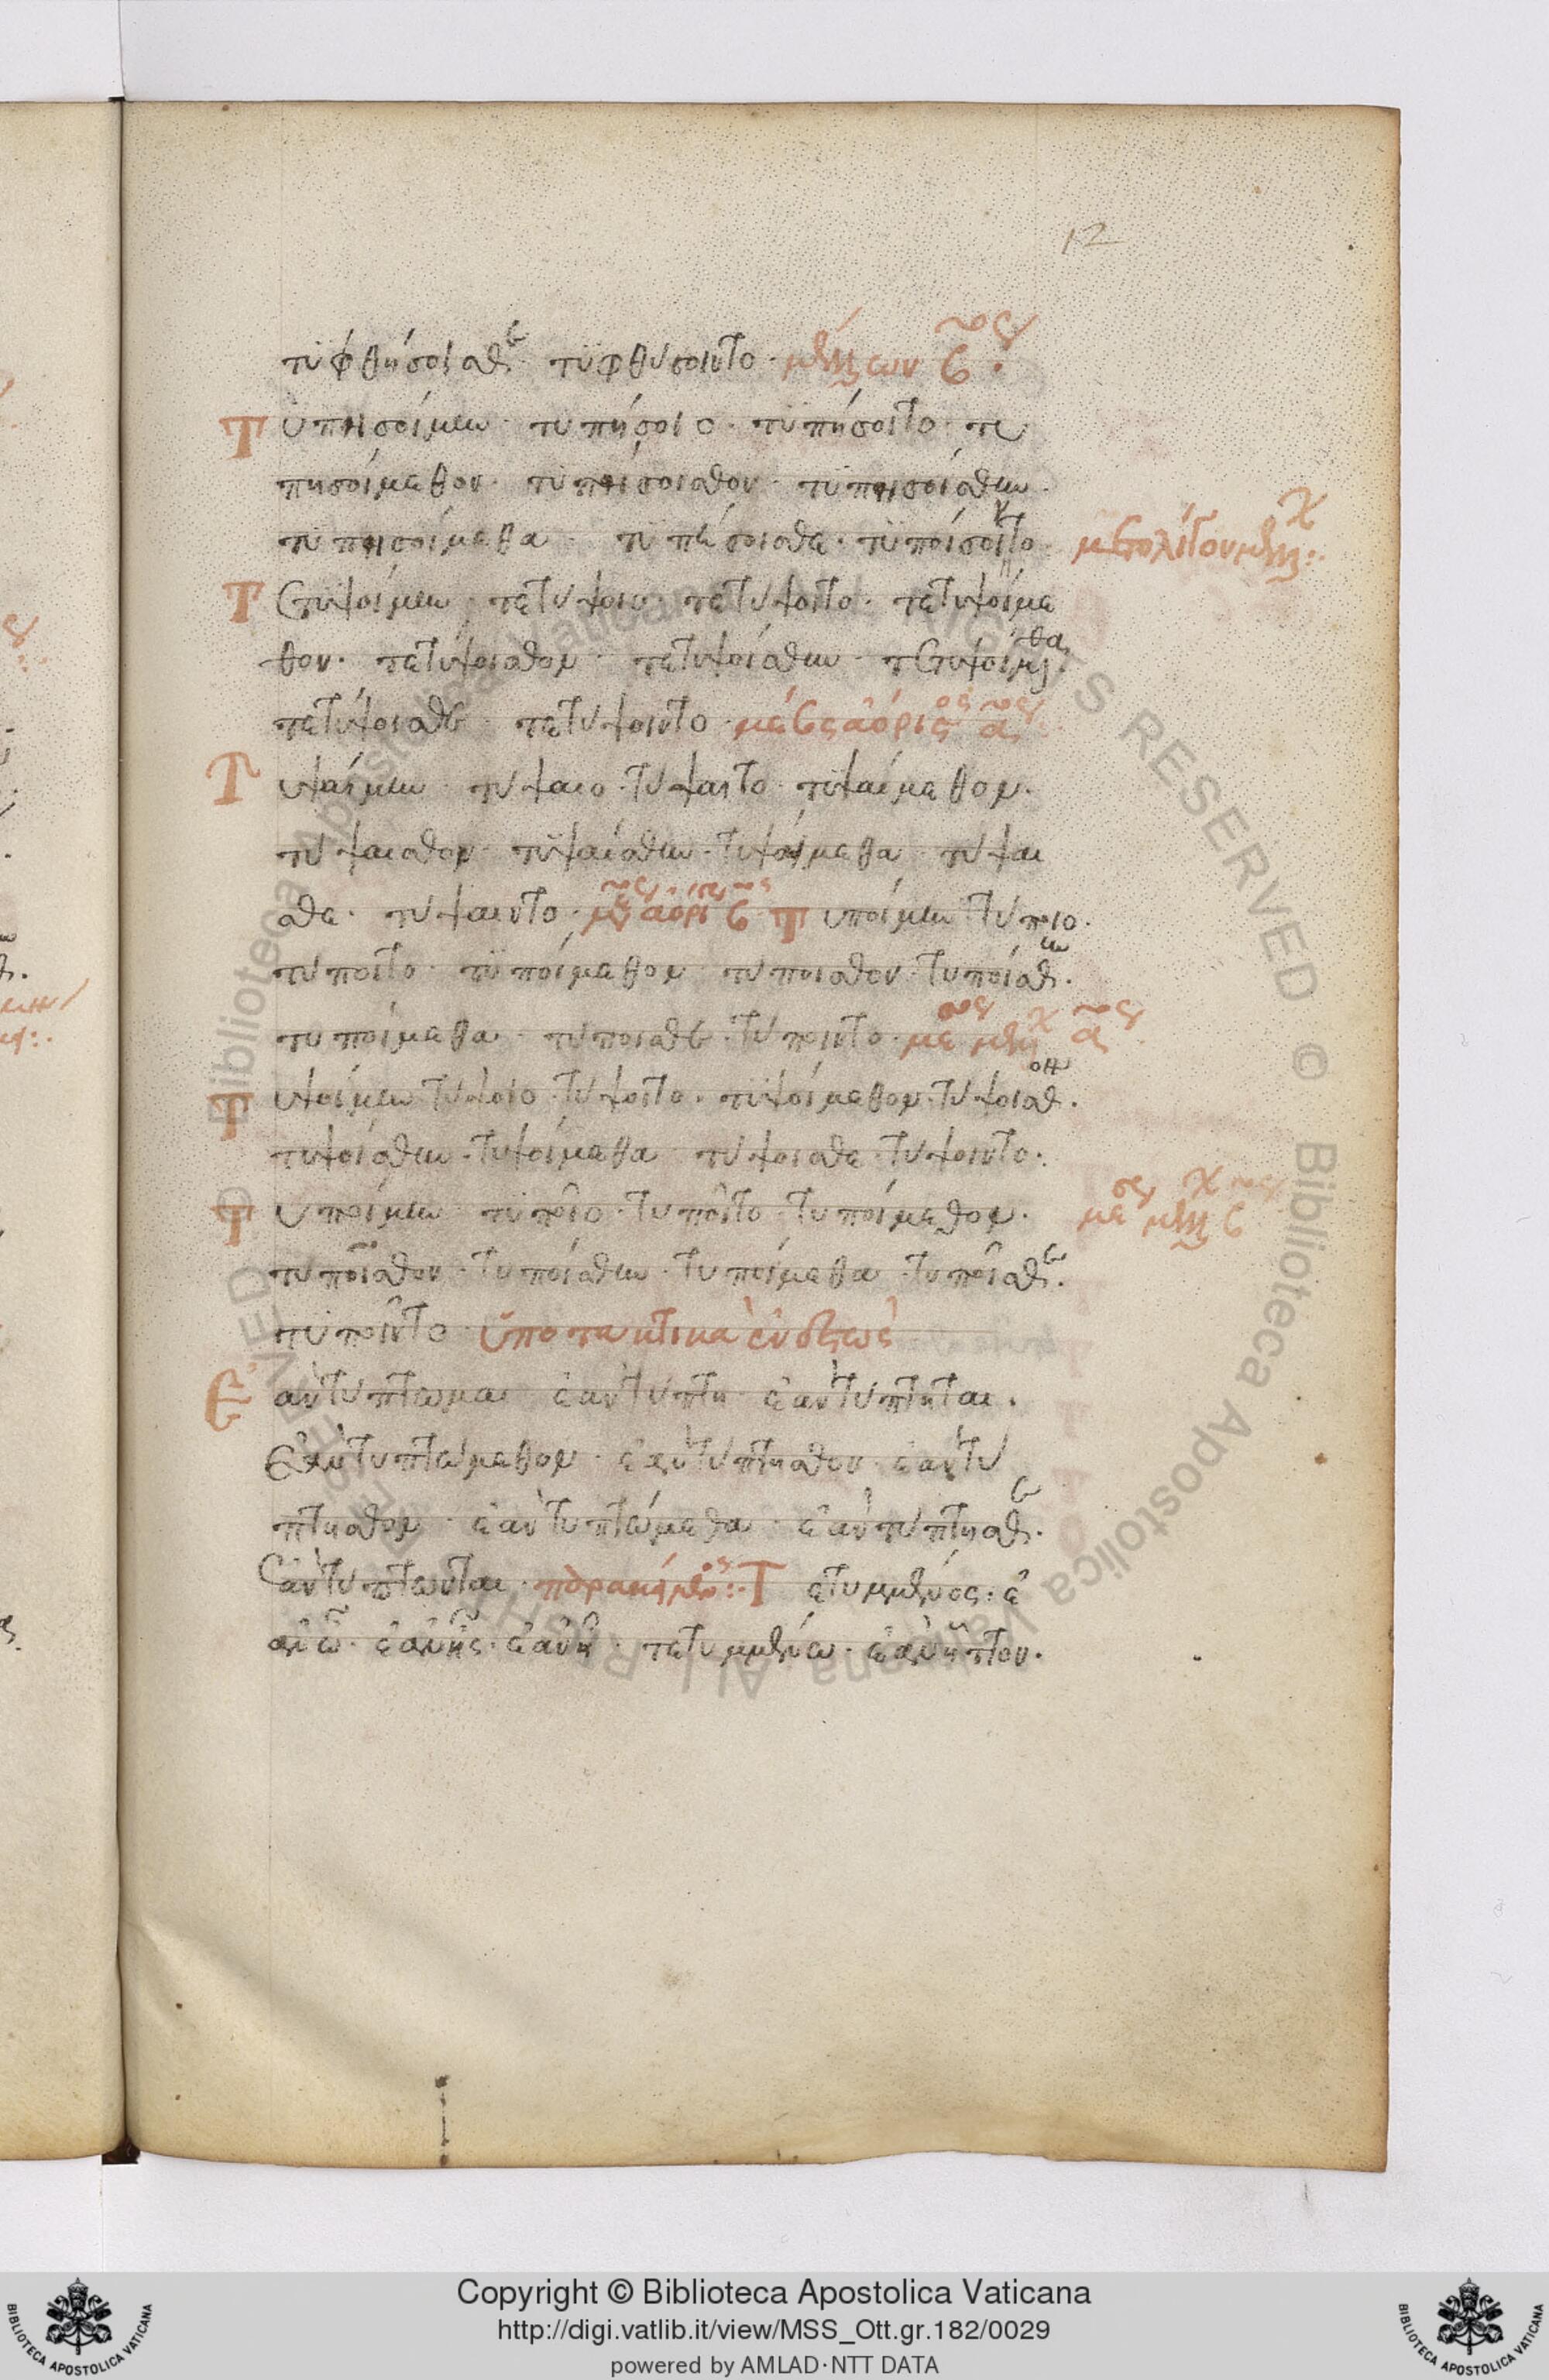 12
τυφθήσοισθε · τυφθησοιντο · μέλλων β̄ος :
Τυπησοίμην · τυπήσοιο · τυπήσοιτο · τυ
πησοίμεθον · τυπήσοισθον · τυπησοίσθην ·
τυπησοίμεθα · τυπήσοισθε · τυποίσοιντο · μετολίγον μέλλ :
Τετυψοίμην · τετυψοιο · τετυψοιτο · τετυψοίμε
θον · τετυψοισθον · τετυψοίσθην · τετυψοίμεθα ·
τετυψοισθε · τετυψοιντο · μέσος ἀόριστος ᾱος
Τυψαίμην · τυψαιο · τυψαιτο · τυψαίμεθον ·
τυψαισθον · τυψαίσθην · τυψαίμεθα · τυψαι
σθε · τυψαιντο · μέσος ἀόριστος β̄ος Τυποίμην τυποιο ·
τυποιτο · τυποίμεθον · τυποισθον · τυποίσθην ·
τυποίμεθα · τυποισθε · τυποιντο · μέσος μέλλ ᾱος
Τυψοίμην · τυψοιο · τυψοιτο · τυψοίμεθον · τυψοισθον ·
τυψοίσθην · τυψοίμεθα · τυψοισθε · τυψοιντο ·
Τυποίμην · τυποῖο · τυποῖτο · τυποίμεθον · μέσος μέλλ β̄ος
τυποῖσθον · τυποίσθην · τυποίμεθα · τυποῖσθε ·
τυποῖντο · ὑποτακτικὰ ἐνεστῶς
Ἐὰν τύπτωμαι ἐὰν τύπτη · ἐὰν τύπτηται ·
ἐὰν τυπτώμεθον · ἐὰν τύπτησθον · ἐὰν τύ
πτησθον · ἐὰν τυπτώμεθα · ἐὰν τύπτησθε ·
ἐὰν τύπτωνται · παρακείμενος : Τετυμμένος · ἐ
ὰν ὦ · ἐὰν ῆς · ἐὰν ῆ · τετυμμένω · ἐὰν ῆτον ·
Copyright © Biblioteca Apostolica Vaticana
http://digi.vatlib.it/view/MSS_Ott.gr.182/0029
powered by AMLAD·NTT DATA